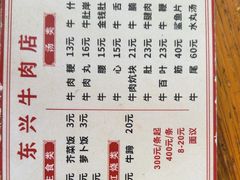 东兴牛肉店
汤类
牛肉粳 13元
牛肉丸 16元
牛心 15元
牛肉炊块 21元
牛肚 23元
牛百叶 23元
牛筋 40元
牛尾 60元
牛肚岸
金钱肚
牛舌
牛脑
牛腱肉
鲨鱼片
水丸汤
主食类
芥菜饭 3元
萝卜饭 3元
红烧类
牛蹄 20元
300元/条起
400元/条
8-20元
面议